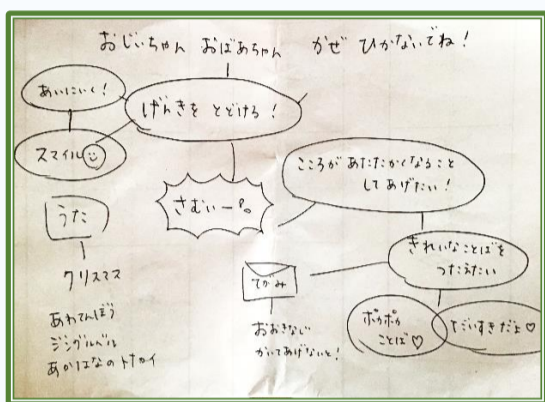 おじいちゃん おばあちゃん かぜ ひかないでね!
あいにいく!
げんきを とどける!
スマイル
さむいー
こころが あたたかくなること
してあげたい!
うた
クリスマス
あわてんぼう
ジングルベル
あかはなのトナカイ
きれいなことばを
つたえたい
てがみ
おおきなじ
かいてあげないと!
ポカポカ
ことば♡
だいすきだよ♡